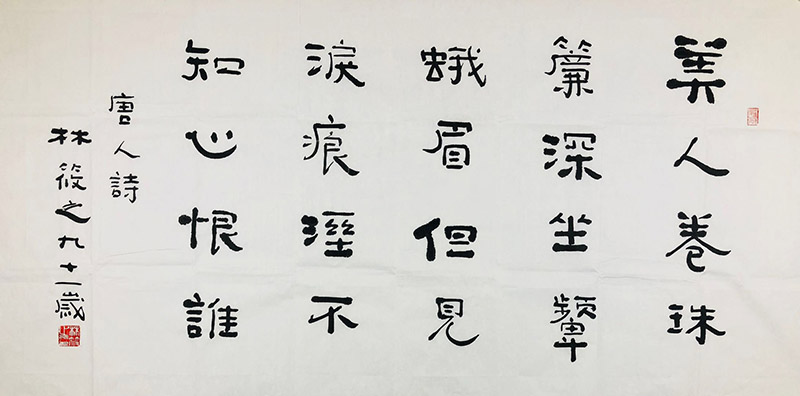 美人卷珠
簾深坐顰
蛾眉但見
淚痕溼不
知心恨誰
唐人詩
林筱之九十一歲